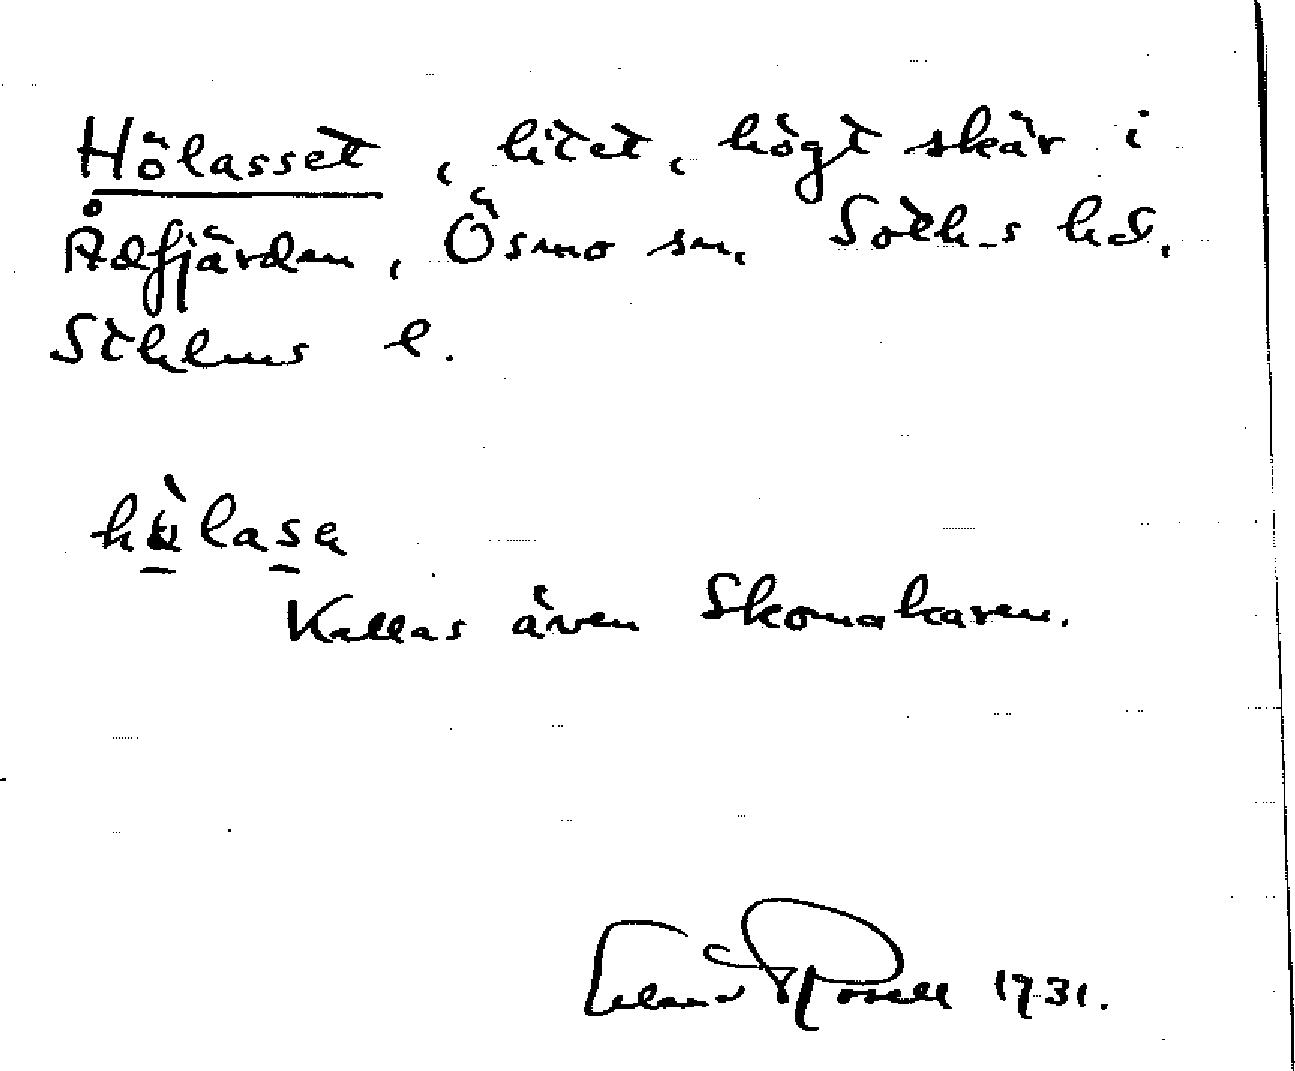 Hölasset, litet, högt skär i
Ådfjärden, Ösmo sn, Soth-s hd.
Sthlms l.
Kallas även Skomakaren.
1931.